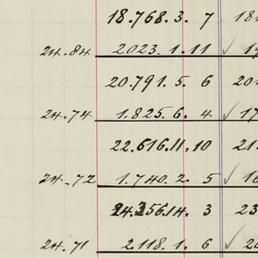 18.768.3.7 18
24.84 2023.1.11 ✓ 19
20.791.5.6 20
24.74 1.825.6.4 ✓ 17
22.616.11.10 21
24.72 1.740.2.5 ✓ 16
24.356.14.3 23
24.71 2.118.1.6 ✓ 20